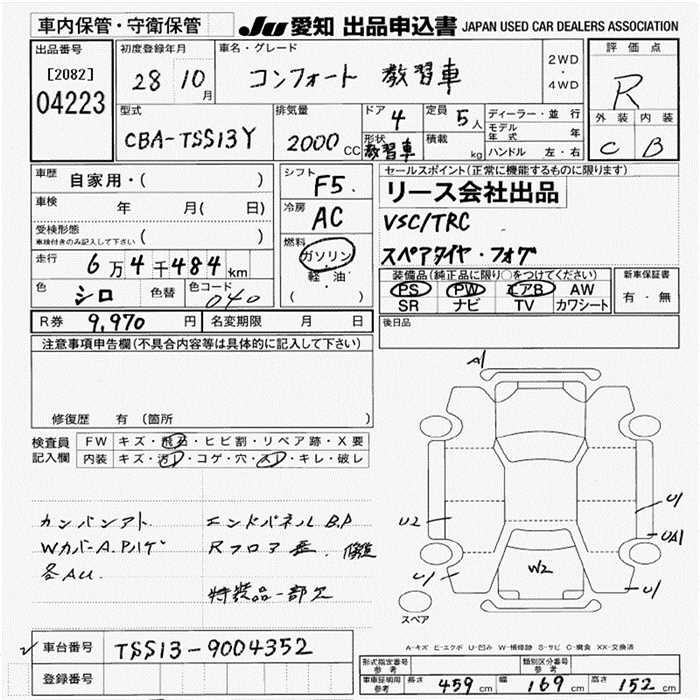 車内保管・守衛保管
JU 愛知 出品申込書 JAPAN USED CAR DEALERS ASSOCIATION
出品番号
[2082]
04223
初度登録年月
28 10月
車名・グレード
コンフォート 教習車
2WD
・
4WD
評価点
R
外装 内装
C B
型式
CBA-TSS13Y
排気量
2000 CC
ドア 4
形状 教習車
定員 5人
積載 kg
ディーラー・並行
モデル年式 年
ハンドル 左・右
車歴 自家用・( )
車検 年 月( 日)
受検形態
車検付きのみ記入して下さい ( )
走行 6万4千484km
色 シロ 色替 色コード 040
シフト F5.
冷房 AC
燃料
ガソリン
・
軽・油
( )
セールスポイント(正常に機能するものに限ります)
リース会社出品
VSC/TRC
スペアタイヤ・フォグ
装備品(純正品に限り○をつけてください)
PS PW エアB AW
SR ナビ TV カワシート
新車保証書
有・無
R券 9,970円 名変期限 月 日
後日品
注意事項申告欄(不具合内容等は具体的に記入して下さい)
修復歴 有 (箇所
検査員記入欄
FW キズ・飛石・ヒビ割・リペア跡・X要
内装 キズ・汚レ・コゲ・穴・スレ・キレ・破レ
カンバンアト
Wカバー-A.Pハゲ
各AU.
エンドパネルB.P
Rフロア 修造
特装品一部欠
A1
U2
U1
U1
UA1
U1
W2
スペア
A-キズ E-エクボ U-凹み W-補修跡 S-サビ C-腐食 XX-交換済
車台番号 TSS13-9004352
登録番号
形式指定番号 参考
類別区分番号 参考
車庫証明用 参考 長さ 459cm 幅 169cm 高さ 152cm